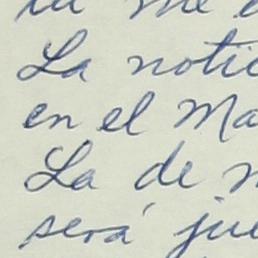 La notic
en el Ma
La de
será jue